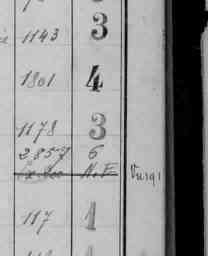 1143 3
1801 4
1178 3
2857 6
N.E. Vurgi
117 1